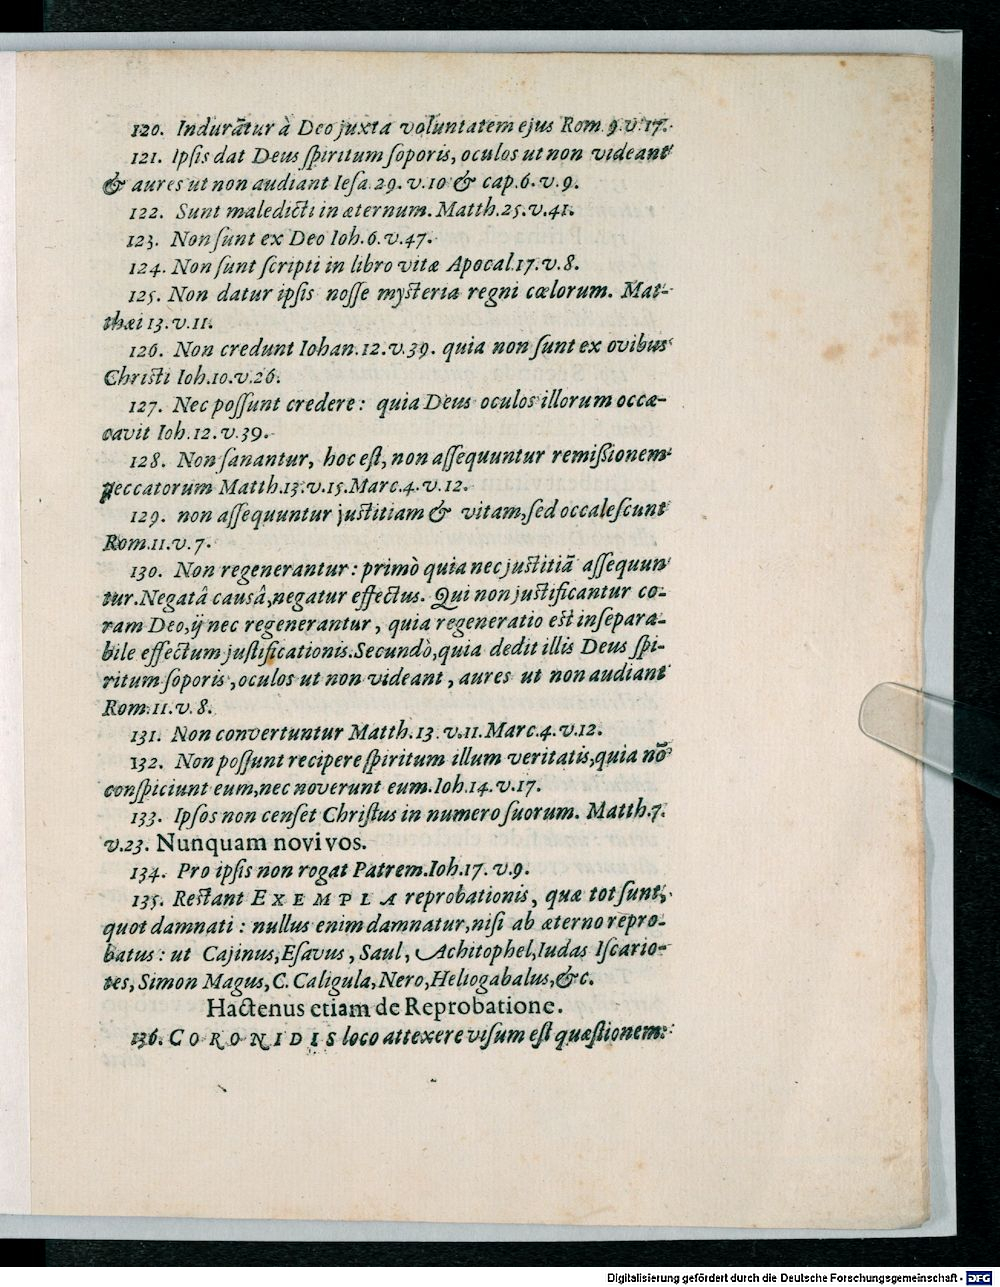 120.Indurãtur à Deo juxta voluntatem ejus Rom. 9. v. 17.
121. Ipsis dat Deus spiritum soporis, oculos ut non videant
& aures ut non audiant Iesa. 29. v. 10 & cap. 6. v. 9.
122. Sunt maledicti in æternum. Matth. 25. v. 41.
123. Non sunt ex Deo Ioh. 6. v. 47.
124. Non sunt scripti in libro vitæ Apocal. 17. v. 8.
125. Non datur ipsis nosse mysteria regni cœlorum. Mat-
thæi 13. v. 11.
126. Non credunt Iohan. 12. v. 39. quia non sunt ex ovibus
Christi Ioh. 10. v. 26.
127. Nec possunt credere: quia Deus oculos illorum occæ-
cavit Ioh. 12. v. 39.
128. Non sanantur, hoc est, non assequuntur remissionem
peccatorum Matth. 13. v. 15. Marc. 4. v. 12.
129. non assequuntur justitiam & vitam, sed occalescunt
Rom. 11. v. 7.
130. Non regenerantur: primò quia nec justitiã assequun
tur. Negatâ causâ, negatur effectus. Qui non justificantur co-
ram Deo, ij nec regenerantur, quia regeneratio est insepara-
bile effectum justificationis. Secundò, quia dedit illis Deus spi-
ritum soporis, oculos ut non videant, aures ut non audiant
Rom. 11. v. 8.
131. Non convertuntur Matth. 13. v. 11. Marc. 4. v. 12.
132. Non possunt recipere spiritum illum veritatis, quia nõ
conspiciunt eum, nec noverunt eum. Ioh. 14. v. 17.
133. Ipsos non censet Christus in numero suorum. Matth. 7.
v. 23. Nunquam novi vos.
134. Pro ipsis non rogat Patrem. Ioh. 17. v. 9.
135. Restant EXEMPLA reprobationis, quæ tot sunt,
quot damnati: nullus enim damnatur, nisi ab æterno repro-
batus: ut Cajinus, Esavus, Saul, Achitophel, Iudas Iscario-
tes, Simon Magus, C. Caligula, Nero, Heliogabalus, &c.
Hactenus etiam de Reprobatione.
136. CORONIDIS loco attexere visum est quæstionem:
Digitalisierung gefördert durch die Deutsche Forschungsgemeinschaft - DFG